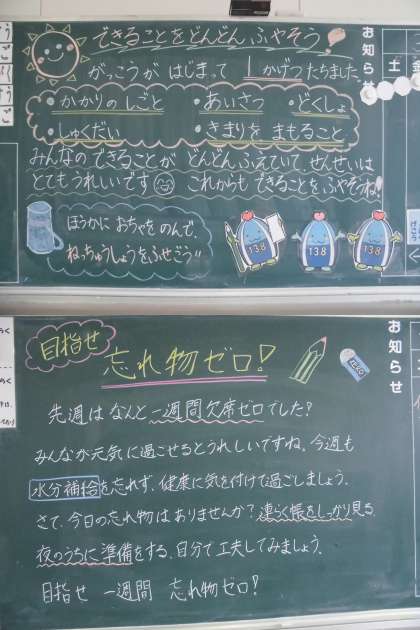 できることをどんどん ふやそう
がっこうが はじまって 1かげつ たちました。
・かかりの しごと ・あいさつ ・どくしょ
・しゅくだい ・きまりを まもること
みんなの できることが どんどん ふえていて、せんせいは
とても うれしいです これからも できることを ふやそうね!
ほうかに おちゃを のんで、
ねっちゅうしょうを ふせごう!!
138 138 138
お知らせ
土 金
目指せ
忘れ物ゼロ!
先週は なんと 一週間 欠席ゼロでした?
みんなが元気に過こせるとうれしいですね。今週も
水分補給を忘れず、健康に気を付けて過ごしましょう。
さて、今日の忘れ物はありませんか?連らく帳をしっかり見る、
夜のうちに準備をする、自分で工夫してみましょう。
目指せ 一週間 忘れ物ゼロ!
お知らせ